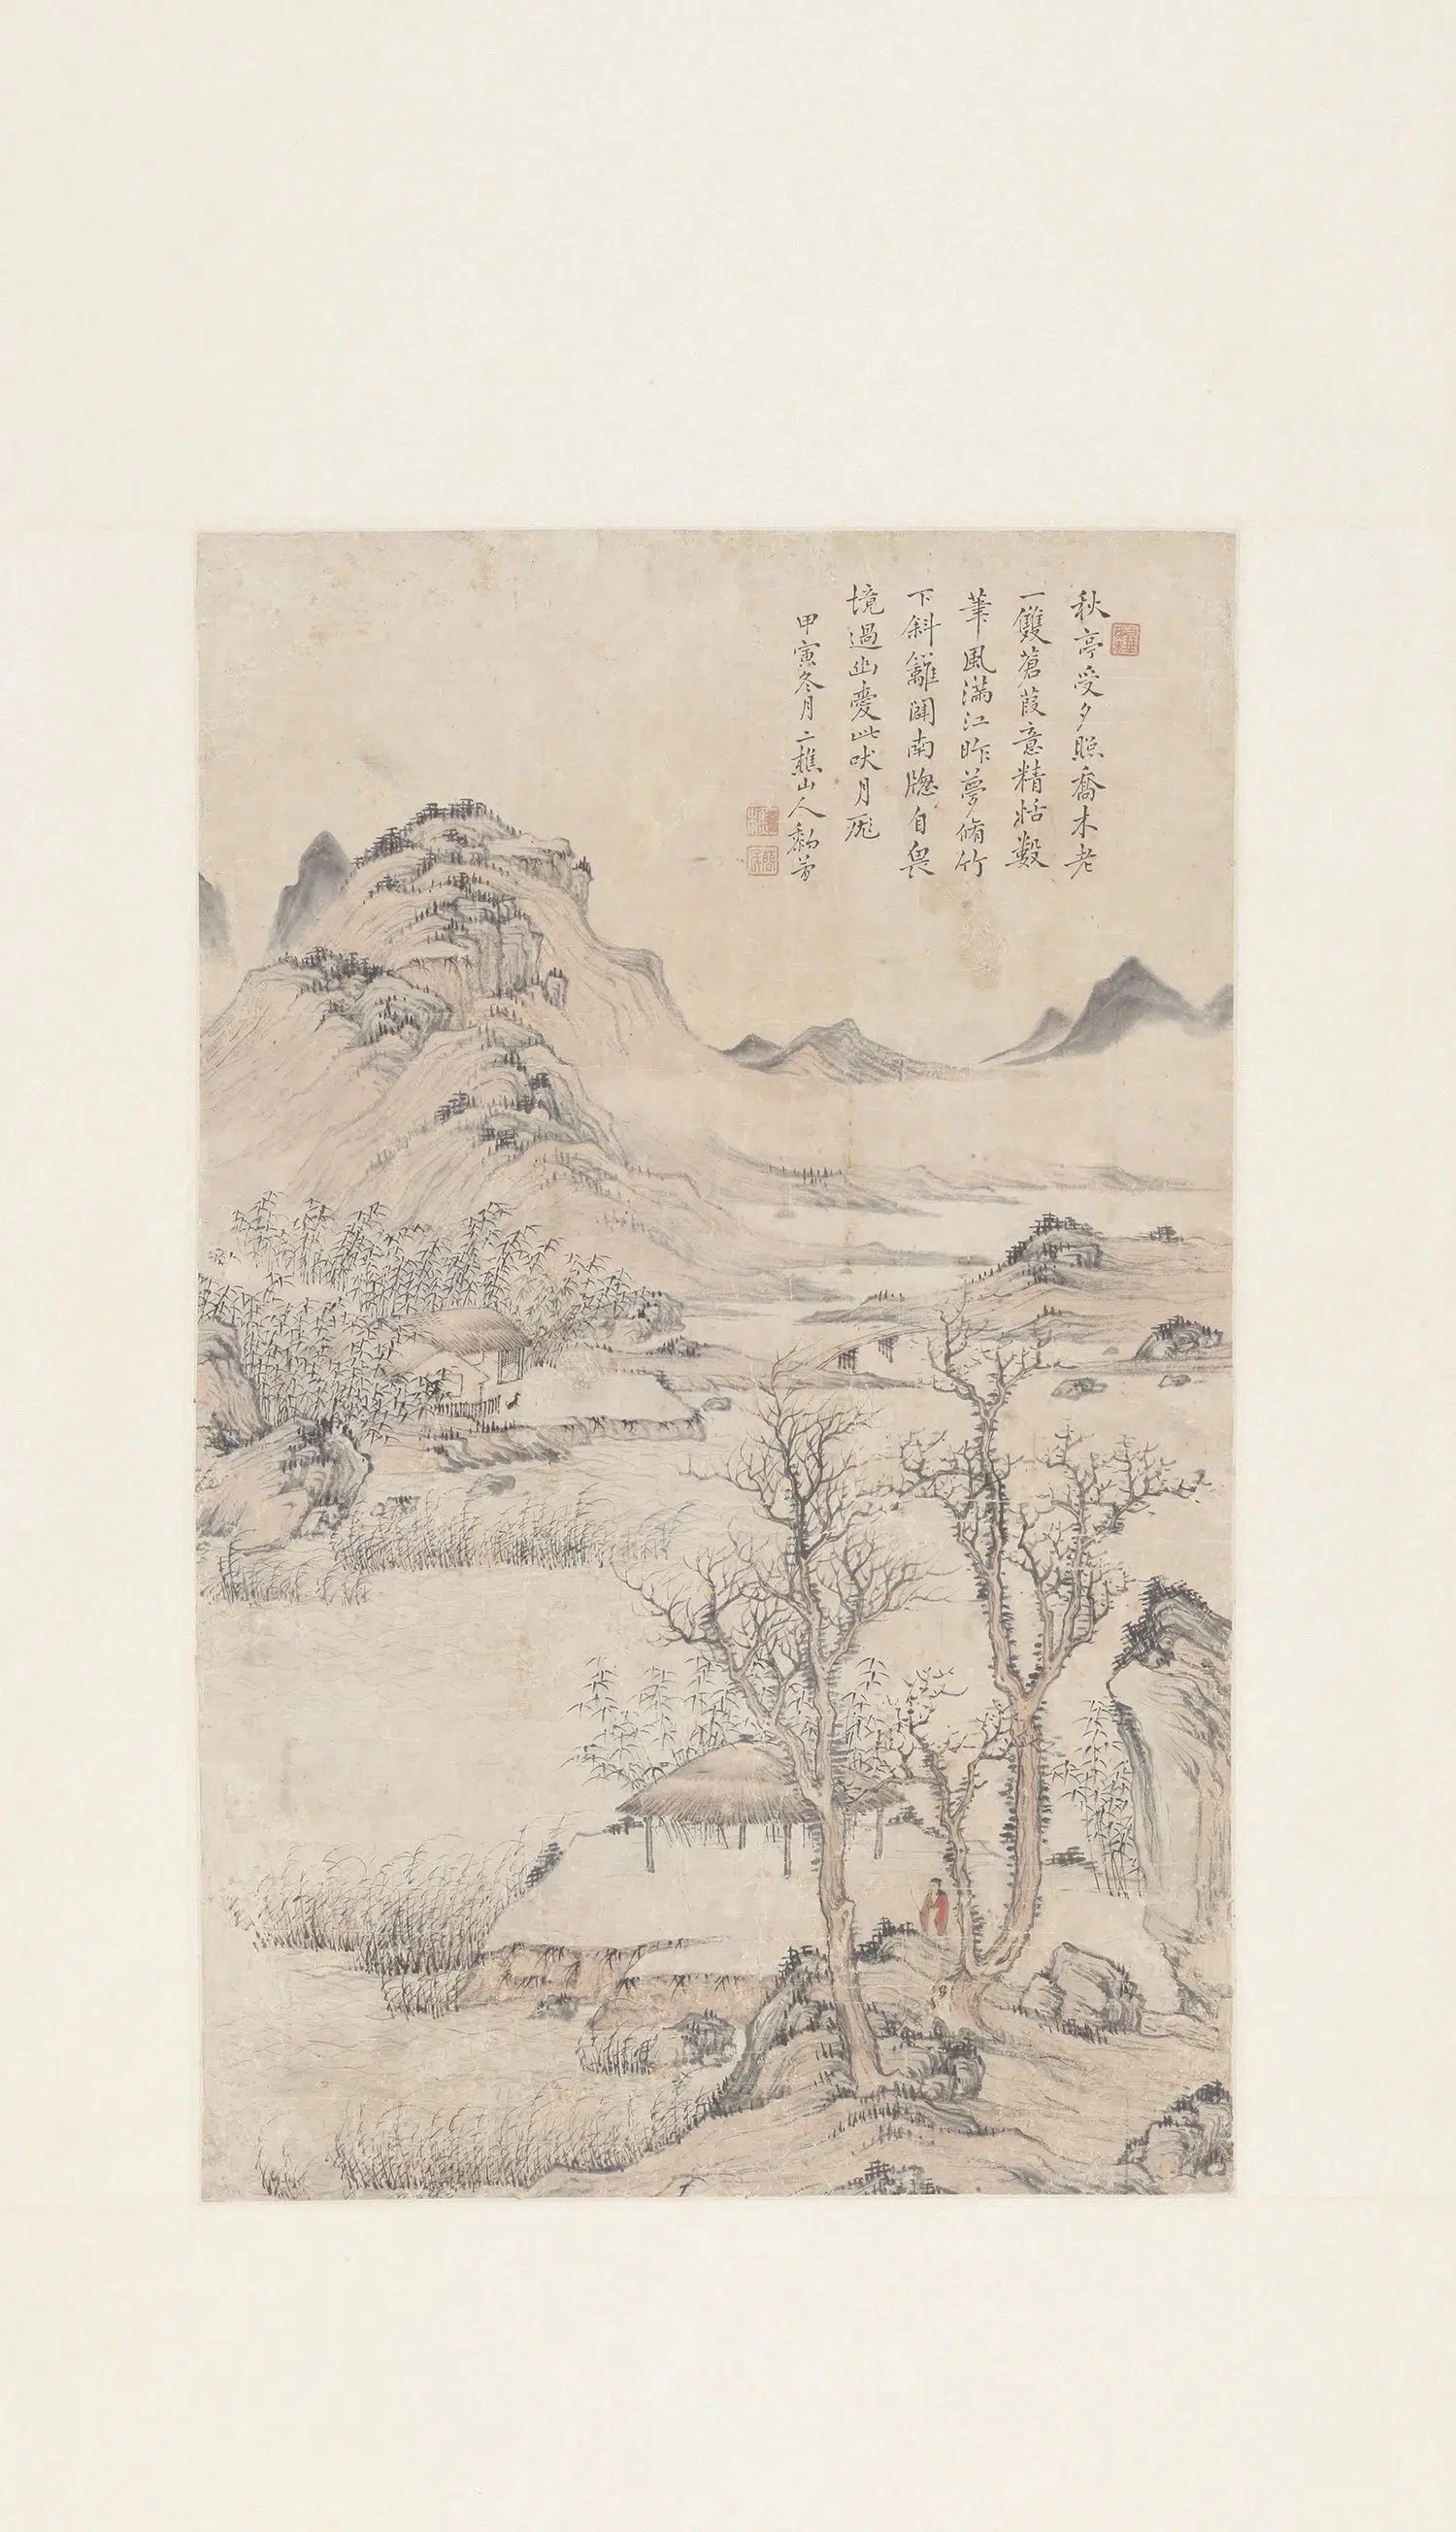 秋亭受夕照喬木老
一雙蒼葭意精恬數
筆風滿江昨夢脩竹
下斜籬闢南牕自畏
境過幽愛此吠月厖
甲寅冬月二樵山人黎簡